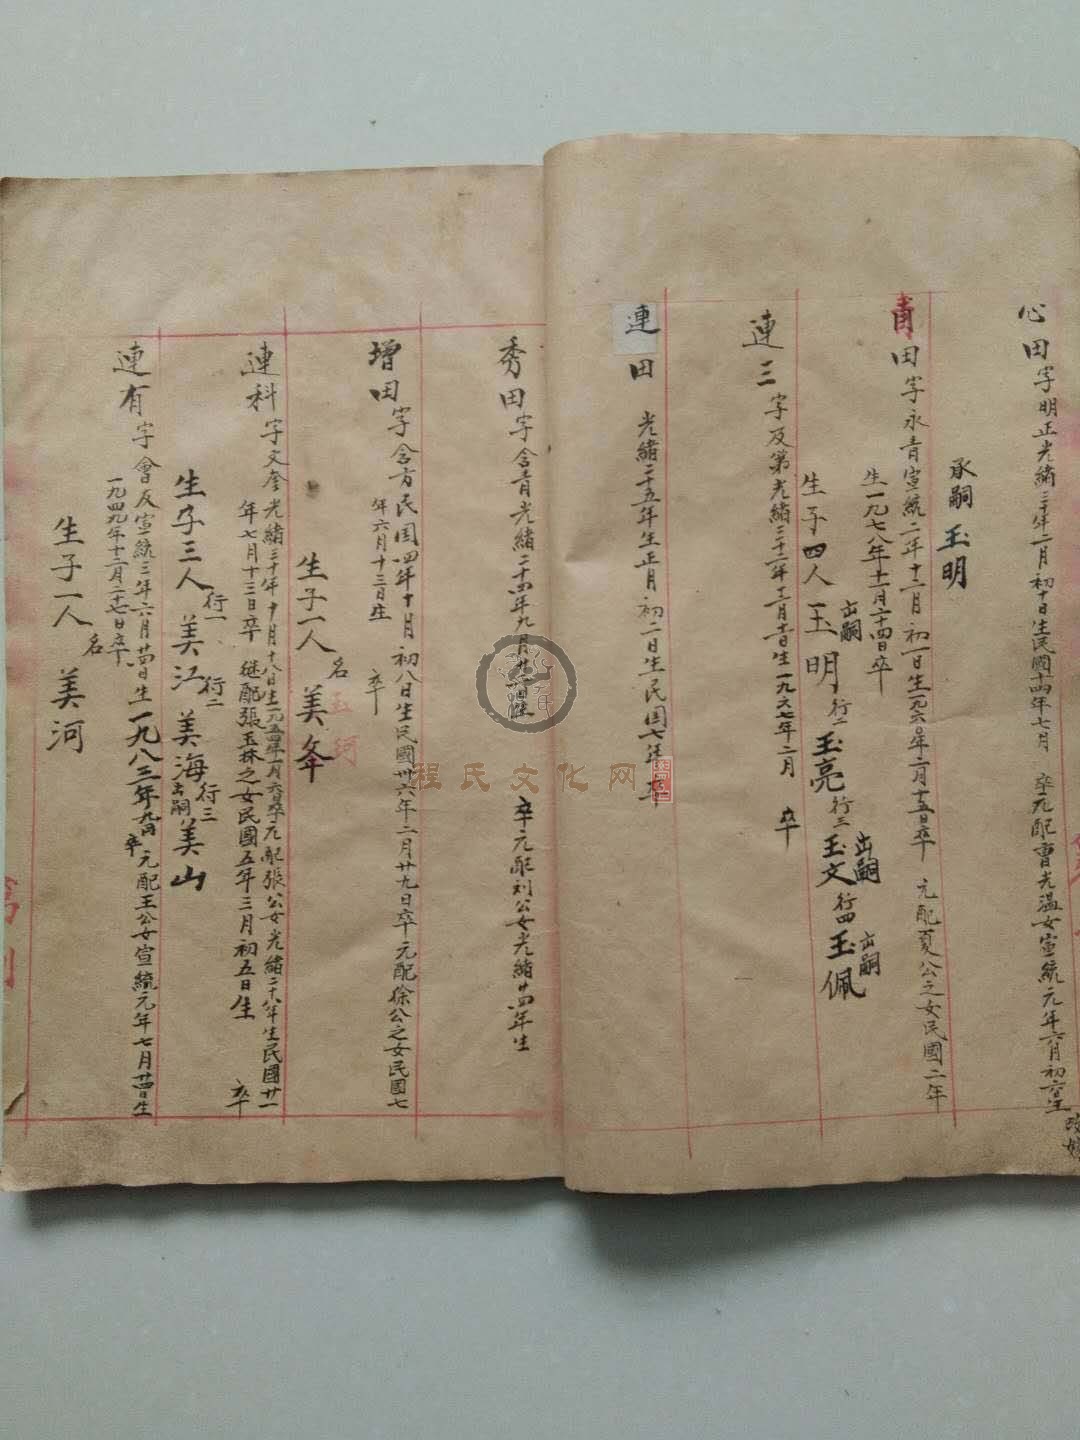 心田字明正光緒三十年二月初十日生民國十四年七月 卒元配曹光温女宣統元年六月初六生
改嫁
承嗣玉明
甫田字永青宣統二年十二月初一日生一九六〇年二月十五日卒 元配夏公之女民國二年
生一九七八年十一月二十四日卒
生子四人 玉明 出嗣 行二 玉亮 行三 玉文 出嗣 行四 玉佩 出嗣
連三字及第光緒三十二年十二月十日生一九六七年二月 卒
連田 光緒二十五年生正月初二日生民国七年卒
秀田字含青光緒二十四年九月 卒元配刘公女光緒廿四年生
增田字含方民国四年十月初八日生民國卅六年二月廿九日卒元配徐公之女民国七
年六月十三日生 卒
生子一人 名 美
玉珂
連科字文奎光緒三十年十月十八日生一九五四年一月六日卒元配張公女光緒二十八年生民國廿一
年七月十三日卒 継配張玉林之女民國五年三月初五日生 卒
生子三人 行一 美江 行二 美海 出嗣 行三 美山
連有字會友宣統三年六月廿四日生一九八三年九月 卒 元配王公女宣統元年七月廿四日生
一九四九年十二月二十七日卒
生子一人 名 美河
程氏文化网